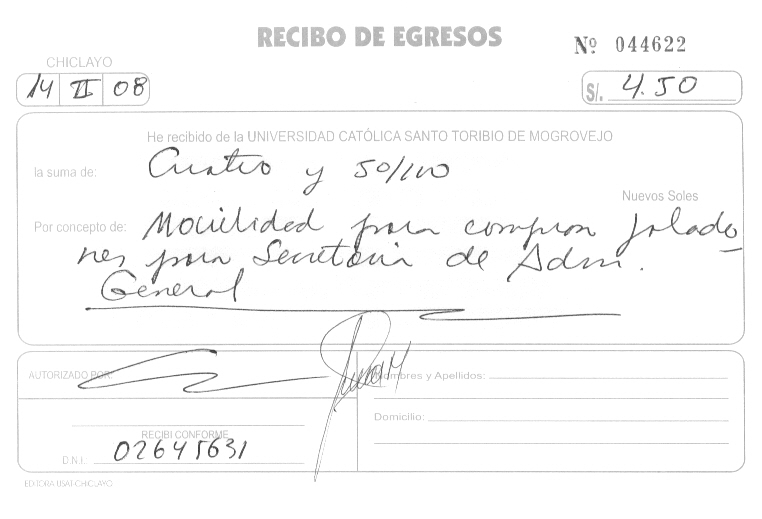 RECIBO DE EGRESOS
Nº 044622
CHICLAYO
14 II 08
S/. 4.50
He recibido de la UNIVERSIDAD CATÓLICA SANTO TORIBIO DE MOGROVEJO
la suma de: Cuatro y 50/100
Nuevos Soles
Por concepto de: Movilidad para comprar jalado-
res para Secretaria de Adm.
General
AUTORIZADO POR:
Nombres y Apellidos:
Domicilio:
RECIBI CONFORME
D.N.I. 02645631
EDITORA USAT-CHICLAYO